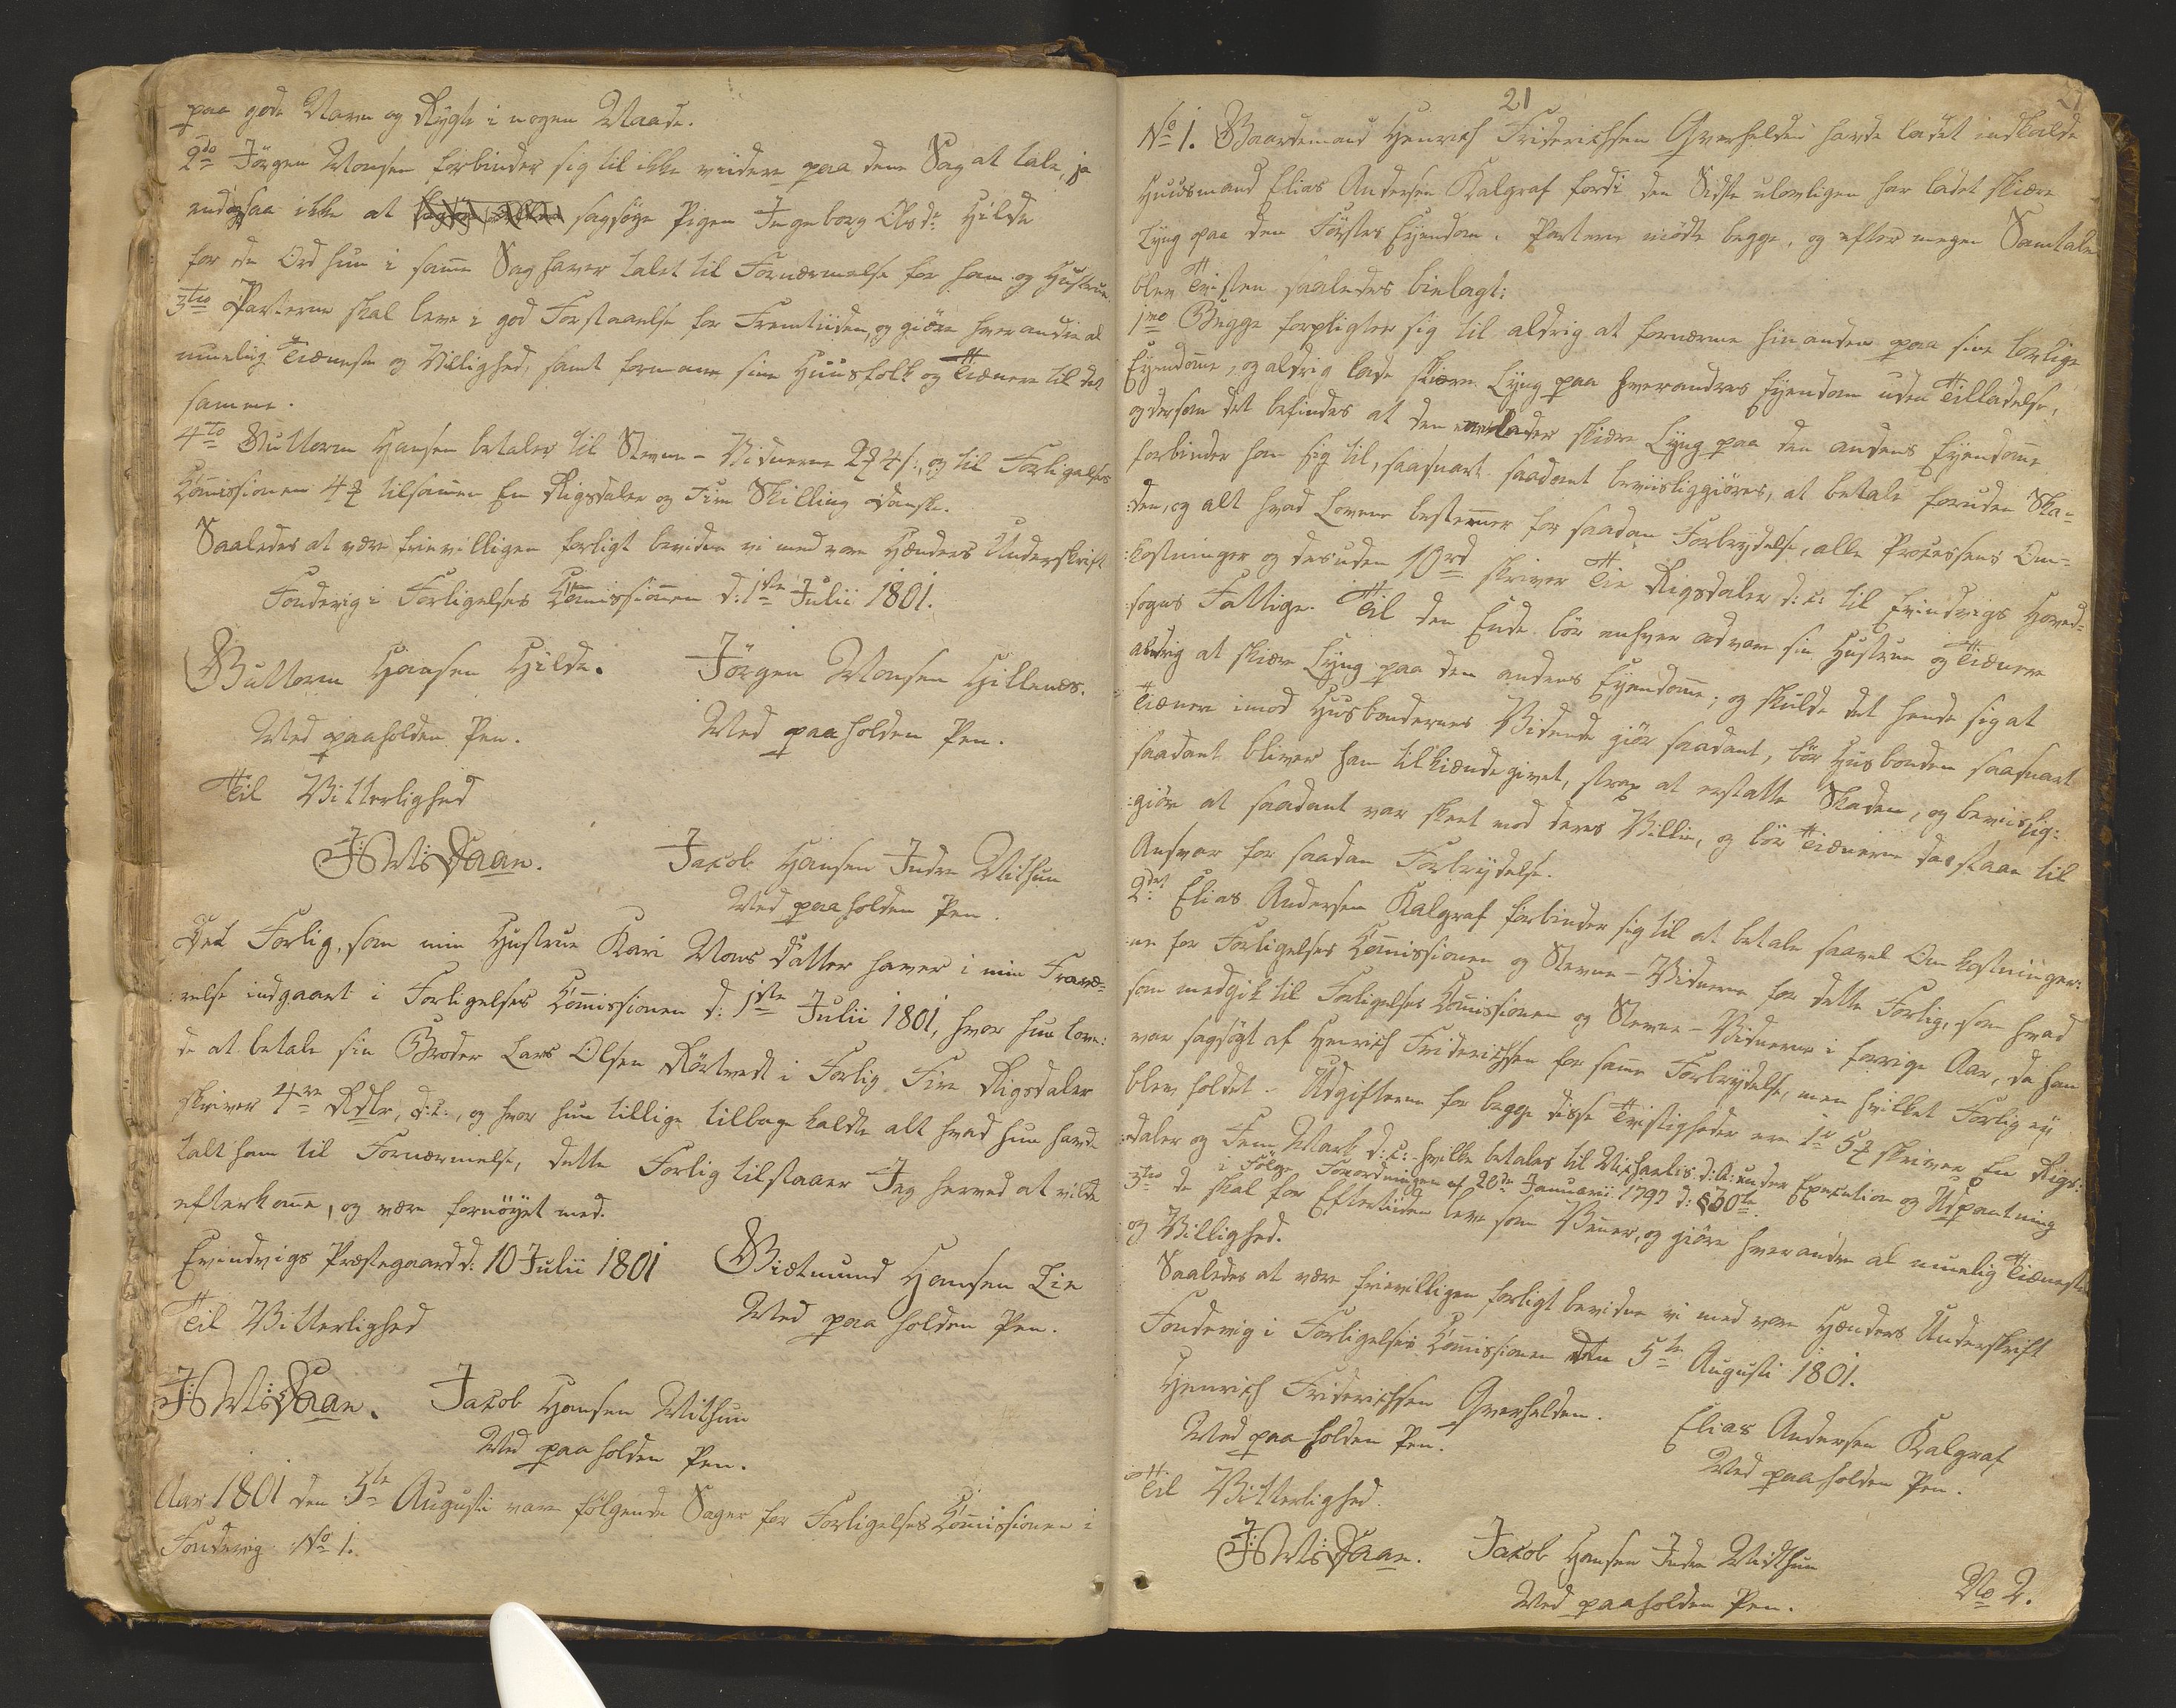 paa gode Navn og Rygte i nogen Maade.
2do Jörgen Monsen forbinder sig til ikke viidere paa dene Sag at tale, ja
endogsaa ikke at sagsöge Pigen Ingeborg Olsdr Hilde
for de Ord hun i same Sag haver talet til Fornærmelse for ham og Hustrue.
3tio Parterne skal leve i god Forstaaelse for Fremtiiden, og giöre hverandre al
muelig Tieneste og Villighed, samt formane sine Huusfolk og Tienere til det
samme.
4to Guttorm Hansen betaler til Stevne-Vidnerne 2 ꝳ 4 s:, og til Forligelses
Comissionen 4 ꝳ tilsamen En Rigsdaler og Fire Skilling danske.
Saaledes at være frievilligen forligt bevidne vi med vore Hænders Underskrift
Sondevig i Forligelses Comissionen d: 1ste Julii 1801.
Guttorm Hansen Hilde. Jörgen Monsen Hillenes.
Med paaholden Pen. Med paaholden Pen.
Til Vitterlighed
Daae. Jacob Hansen Indre Mithun
Med paaholden Pen.
Det Forlig, som min Hustrue Kari Mons datter haver i min Fravæ=
:relse indgaaet i Forligelses Comissionen d: 1ste Julii 1801, hvor hun love:
de at betale sin Broder Lars Olsen i Forlig Fire Rigsdaler
skriver 4re Rdlr, d: c:, og hvor hun tillige tilbage kaldte alt hvad hun havde
talt ham til Fornærmelse, dette Forlig tilstaaer Jeg herved at vilde
efterkome, og være fornöyet med.
Evindvigs Præstegaard d: 10 Julii 1801 Gietmund Hansen Lie
Til Vitterlighed Med paa holden Pen.
Daae. Jacob Hansen Mithun
Med paaholden Pen.
Aar 1801 den 5te Augusti vare fölgende Sager for Forligelses Comissionen i
Sondevig No 1.
21
No 1. Gaardemand Henrich Friderichsen Qverhelden havde ladet indkalde
Huusmand Elias Andersen Kalgraf fordi den Sidste ulovligen har ladet skiære
Lyng paa den Förstes Eyendom. Parterne mödte begge, og efter megen Samtale
blev Tvisten saaledes bielagt:
1mo Begge forpligter sig til aldrig at fornærme hinanden paa sine lovlige
Eyendome, og aldrig lade skiære Lyng paa hverandres Eyendom uden Tilladelse,
og dersom det befindes at den ene lader skiære Lyng paa den andens Eyendome
forbinder han sig til, saasnart saadant beviisliggiöres, at betale foruden Ska=
:den, og alt hvad Lovene bestemer for saadan Forbrydelse, alle Processens Om=
:kostninger og desuden 10 rd skriver Tie Rigsdaler d: c: til Evindvigs Hoved=
:sogns Fattige. Til den Ende bör enhver advare sin Hustrue og Tienere
aldrig at skiære Lyng paa den andens Eyendome; og skulde det hende sig at
Tienere imod Husbondernes Vidende giör saadant, bör Husbonden saasnart
saadant bliver ham tilkiændegivet, strax at erstatte Skaden, og beviislig:
:giöre at saadant var skeet mod deres Villie, og bör Tienerne da staae til
Ansvar for saadan Forbrydelse.
2det Elias Andersen Kalgraf forbinder sig til at betale saavel Omkostninger:
ne for Forligelses Comissionen og Stevne-Vidnerne for dette Forlig, som hvad
som medgik til Forligelses Comissionen og Stevne-Vidnerne i forrige Aar, da han
var sagsögt af Henrich Friderichsen for same Forbrydelse, men hvilket Forlig ey
blev holdet. Udgifterne for begge disse Tvistigheder ere 1 r 5 ꝳ skriver En Rigs:
:daler og Fem Mark d: c: hvilke betales til Michaelis d: A: under Execution og Udpantning
i Fölge Forordningen af 20de Januarii 1797 d: § 30te.
3tio de skal for Eftertiiden leve som Vener, og giöre hverandre al muelig Tieneste
og Villighed.
Saaledes at være frievilligen forligt bevidne vi med vore Hænders Underskrift
Sondevig i Forligelses Comissionen den 5te Augusti 1801.
Henrich Friderichsen Qverhelden. Elias Andersen Kalgraf
Med paa holden Pen. Med paaholden Pen.
Til Vitterlighed.
Daae. Jacob Hansen Indre Midthun
Med paaholden Pen.
No 2.